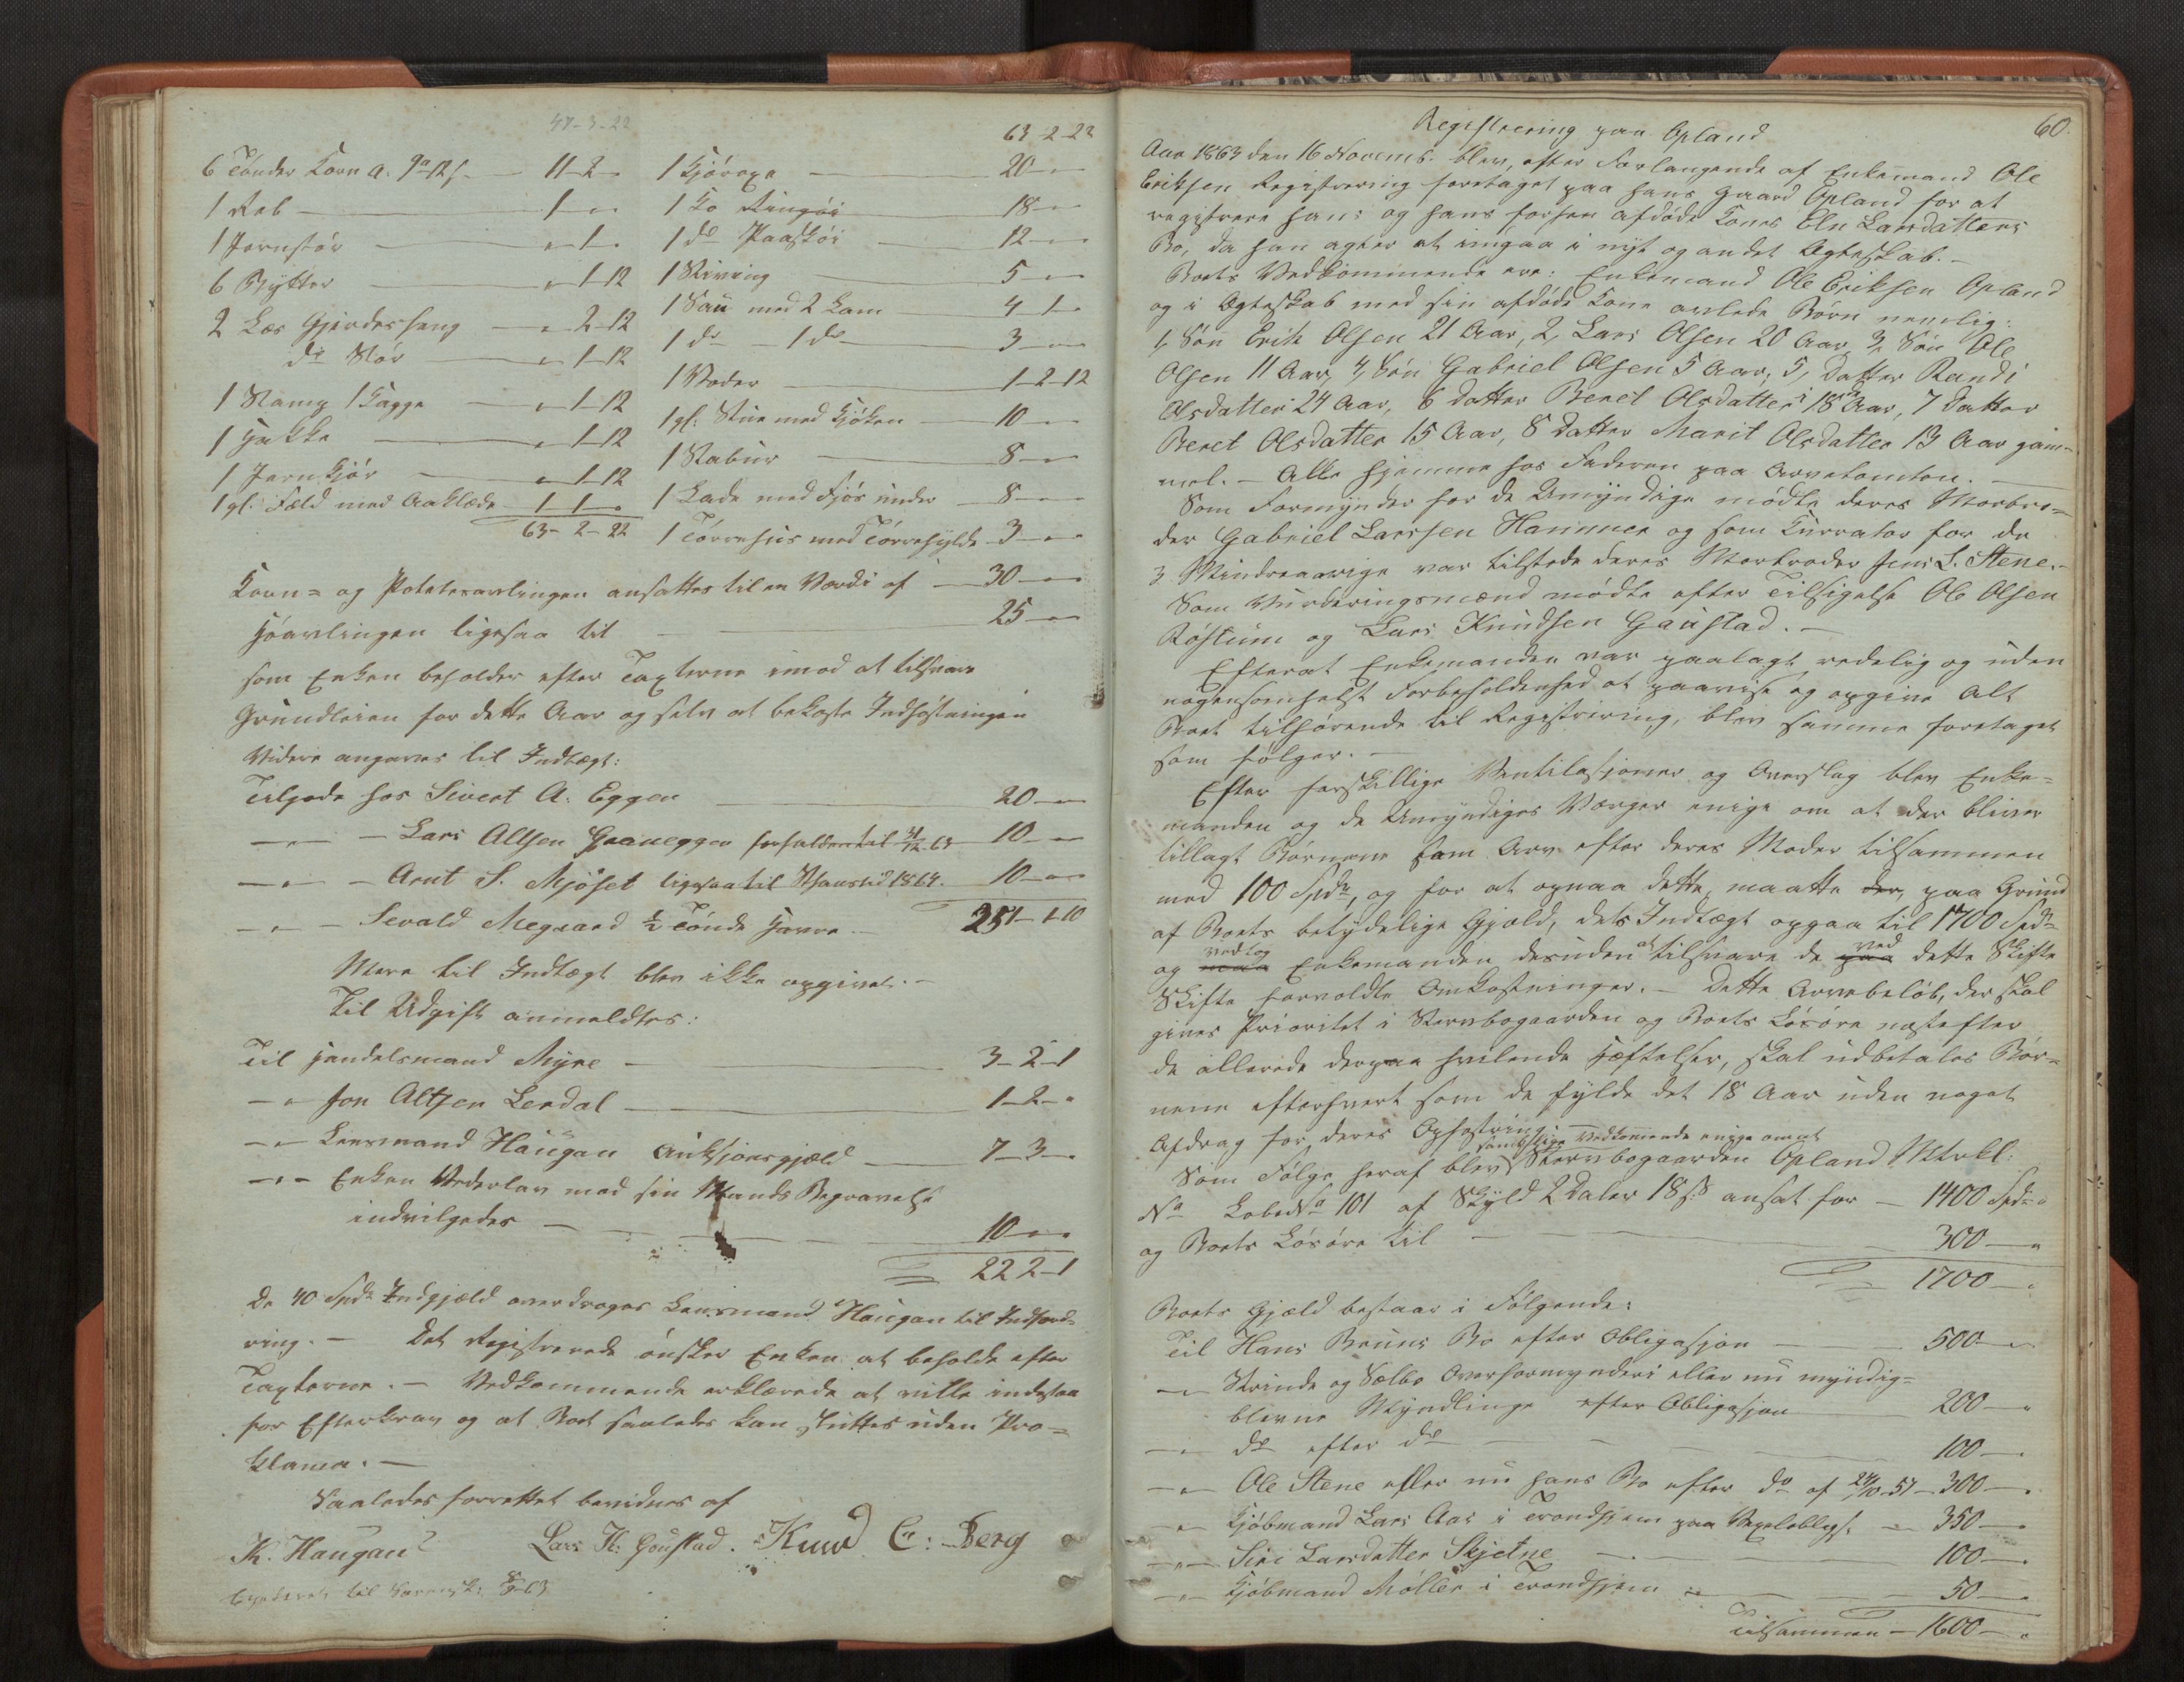 47-3-22
6 Tønder Korn a. 9 ort 12 s. — 11-2-"
1 Reb — 1-"-"
1 Jernstör — "-1-"
6 Bøtter — "-1-12
2 Læs Gjerdeshang — "-2-12
do Stör — "-1-12
1 Stamp 1 Kagge — "-1-12
1 Hakke — "-1-12
1 Jernkjör — "-1-12
1 gl. Fæld med Aaklæde — 1-1-"
63-2-22
63-2-22
1 Kjöroxe — 20-"-"
1 Ko Ringöi — 18-"-"
1 do Paaskøi — 12-"-"
1 Qviving — 5-"-"
1 Sau med 2 Lam — 4-1-"
1 do — 1 do — 3-"-"
1 Væder — 1-2-12
1 gl. Stue med Kjöken — 10-"-"
1 Stabur — 8-"-"
1 Lade med Fjös under — 8-"-"
1 Törrehus med Törrehylde — 3-"-"
Korn- og Potetesavlingen ansattes til en Værdi af — 30-"-"
Høavlingen ligesaa til — 25-"-"
som Enken beholder efter Taxterne imod at tilsvare
Grundleien for dette Aar og selv at bekoste Indhøstningen
Videre angaves til Indtægt:
Tilgode hos Sivert A. Eggen — 20-"-"
— " — Lars Altsen Graneggen forfalden til 31/12-63 — 10-"-"
— " — Arnt S. Mjöset ligesaa til Vaaren 1864. — 10-"-"
— " — Sevald Megaard ½ Tønde Havre — 251-1-10
Mere til Indtægt blev ikke opgivet. —
Til Udgift anmeldtes:
Til Handelsmand Myre — 3-2-1
— " Jon Altsen Lerdal — 1-2-"
— " Lensmand Haugan Auktionsgjæld — 7-3-"
— " — Enken Vederlav med sin Mands Begravelse
indvilgedes — 10-"-"
22 2-1
De 40 Spd Indgjæld overdroges Lensmand Haugan til Indford-
ring. — Det Registrerede ønsker Enken at beholde efter
Taxterne. — Vedkommende erklærede at ville indestaa
for Efterkrav og at Boet saaledes kan sluttes uden Pro-
klama. —
Saaledes forrettet bevidnes af
K. Haugan Lars K. Goustad. Knud E: Berg
til Sorensk:
60.
Registrering paa Opland
Aar 1863 den 16 Novemb. blev, efter Forlangende af Enkemand Ole
Eriksen Registrering foretaget paa hans Gaard Opland for at
registrere hans og hans forhen afdøde Kones Eln Larsdatters
Bo, da han agter at indgaa i nyt og andet Ægteskab. —
Boets Vedkommende ere: Enkemand Ole Eriksen Opland
og i Ægteskab med sin afdøde Kone avlede Børn nemlig:
1, Søn Erik Olsen 21 Aar, 2, Lars Olsen 20 Aar, 3, Søn Ole
Olsen 11 Aar, 4, Søn Gabriel Olsen 5 Aar, 5, Datter Randi
Olsdatter 24 Aar, 6 Datter Beret Olsdatter i 18 Aar, 7 Datter
Beret Olsdatter 15 Aar, 8 Datter Marit Olsdatter 13 Aar gam-
mel. — Alle hjemme hos Faderen paa Arvetomten. —
Som Formynder for de Umyndige mødte deres Morbro-
der Gabriel Larssen Hammer og som Kurrator for de
3 Mindreaarige var tilstede deres Morbroder Jens L. Stene. —
Som Vurderingsmænd mødte efter Tilsigelse Ole Olsen
Røstum og Lars Knudsen Gaustad. —
Efterat Enkemanden var paalagt redelig og uden
nogensomhelst Forbeholdenhed at paavise og opgive Alt
Boet tilhørende til Registrering, blev samme foretaget
som følger. —
Efter forskillige Ventilasjoner og Overslag blev Enke-
manden og de Umyndiges Værger enige om at der bliver
tillagt Børnene som Arv efter deres Moder tilsammen
med 100 Spd, og for at opnaa dette, maatte der, paa Grund
af Boets betydelige Gjæld, dets Indtægt opgaa til 1700 Spd
og vedtog Enkemanden desuden at tilsvare de paa ved dette Skifte
Skifte forvoldte Omkostninger. — Dette Arvebeløb, der skal
gives Prioritet i Stervbogaarden og Boets Løsøre næstefter
de allerede derpaa hvilende Hæftelser, skal udbetales Bør-
nene efterhvert som de fylde det 18 Aar uden noget
Afdrag for deres Opfostring. —
Som Følge heraf blev samtlige Vedkommende enige om at Stervbogaarden Opland Mtrkl:
No LøbeNo 101 af Skyld 2 Daler 18 s ansat for — 1400 Spd "
og Boets Løsøre til — 300-"
1700-"
Boets Gjæld bestaar i Følgende:
Til Hans Bruns Bo efter Obligasjon — 500-"
— " Strinde og Sælbo Overformynderi eller nu myndig-
blevne Myndlinge efter Obligasjon — 200-"
— " do efter do — 100-"
— " — Ole Stene eller nu hans Bo efter do af 24/10-57 — 300-"
— " Kjøbmand Lars Aas i Trondhjem paa Vexelobligs. — 350-"
— " — Siri Larsdatter Skjetne — 100-"
— " Kjøbmand Møller i Trondhjem — 50-"
Tilsammen — 1600-"